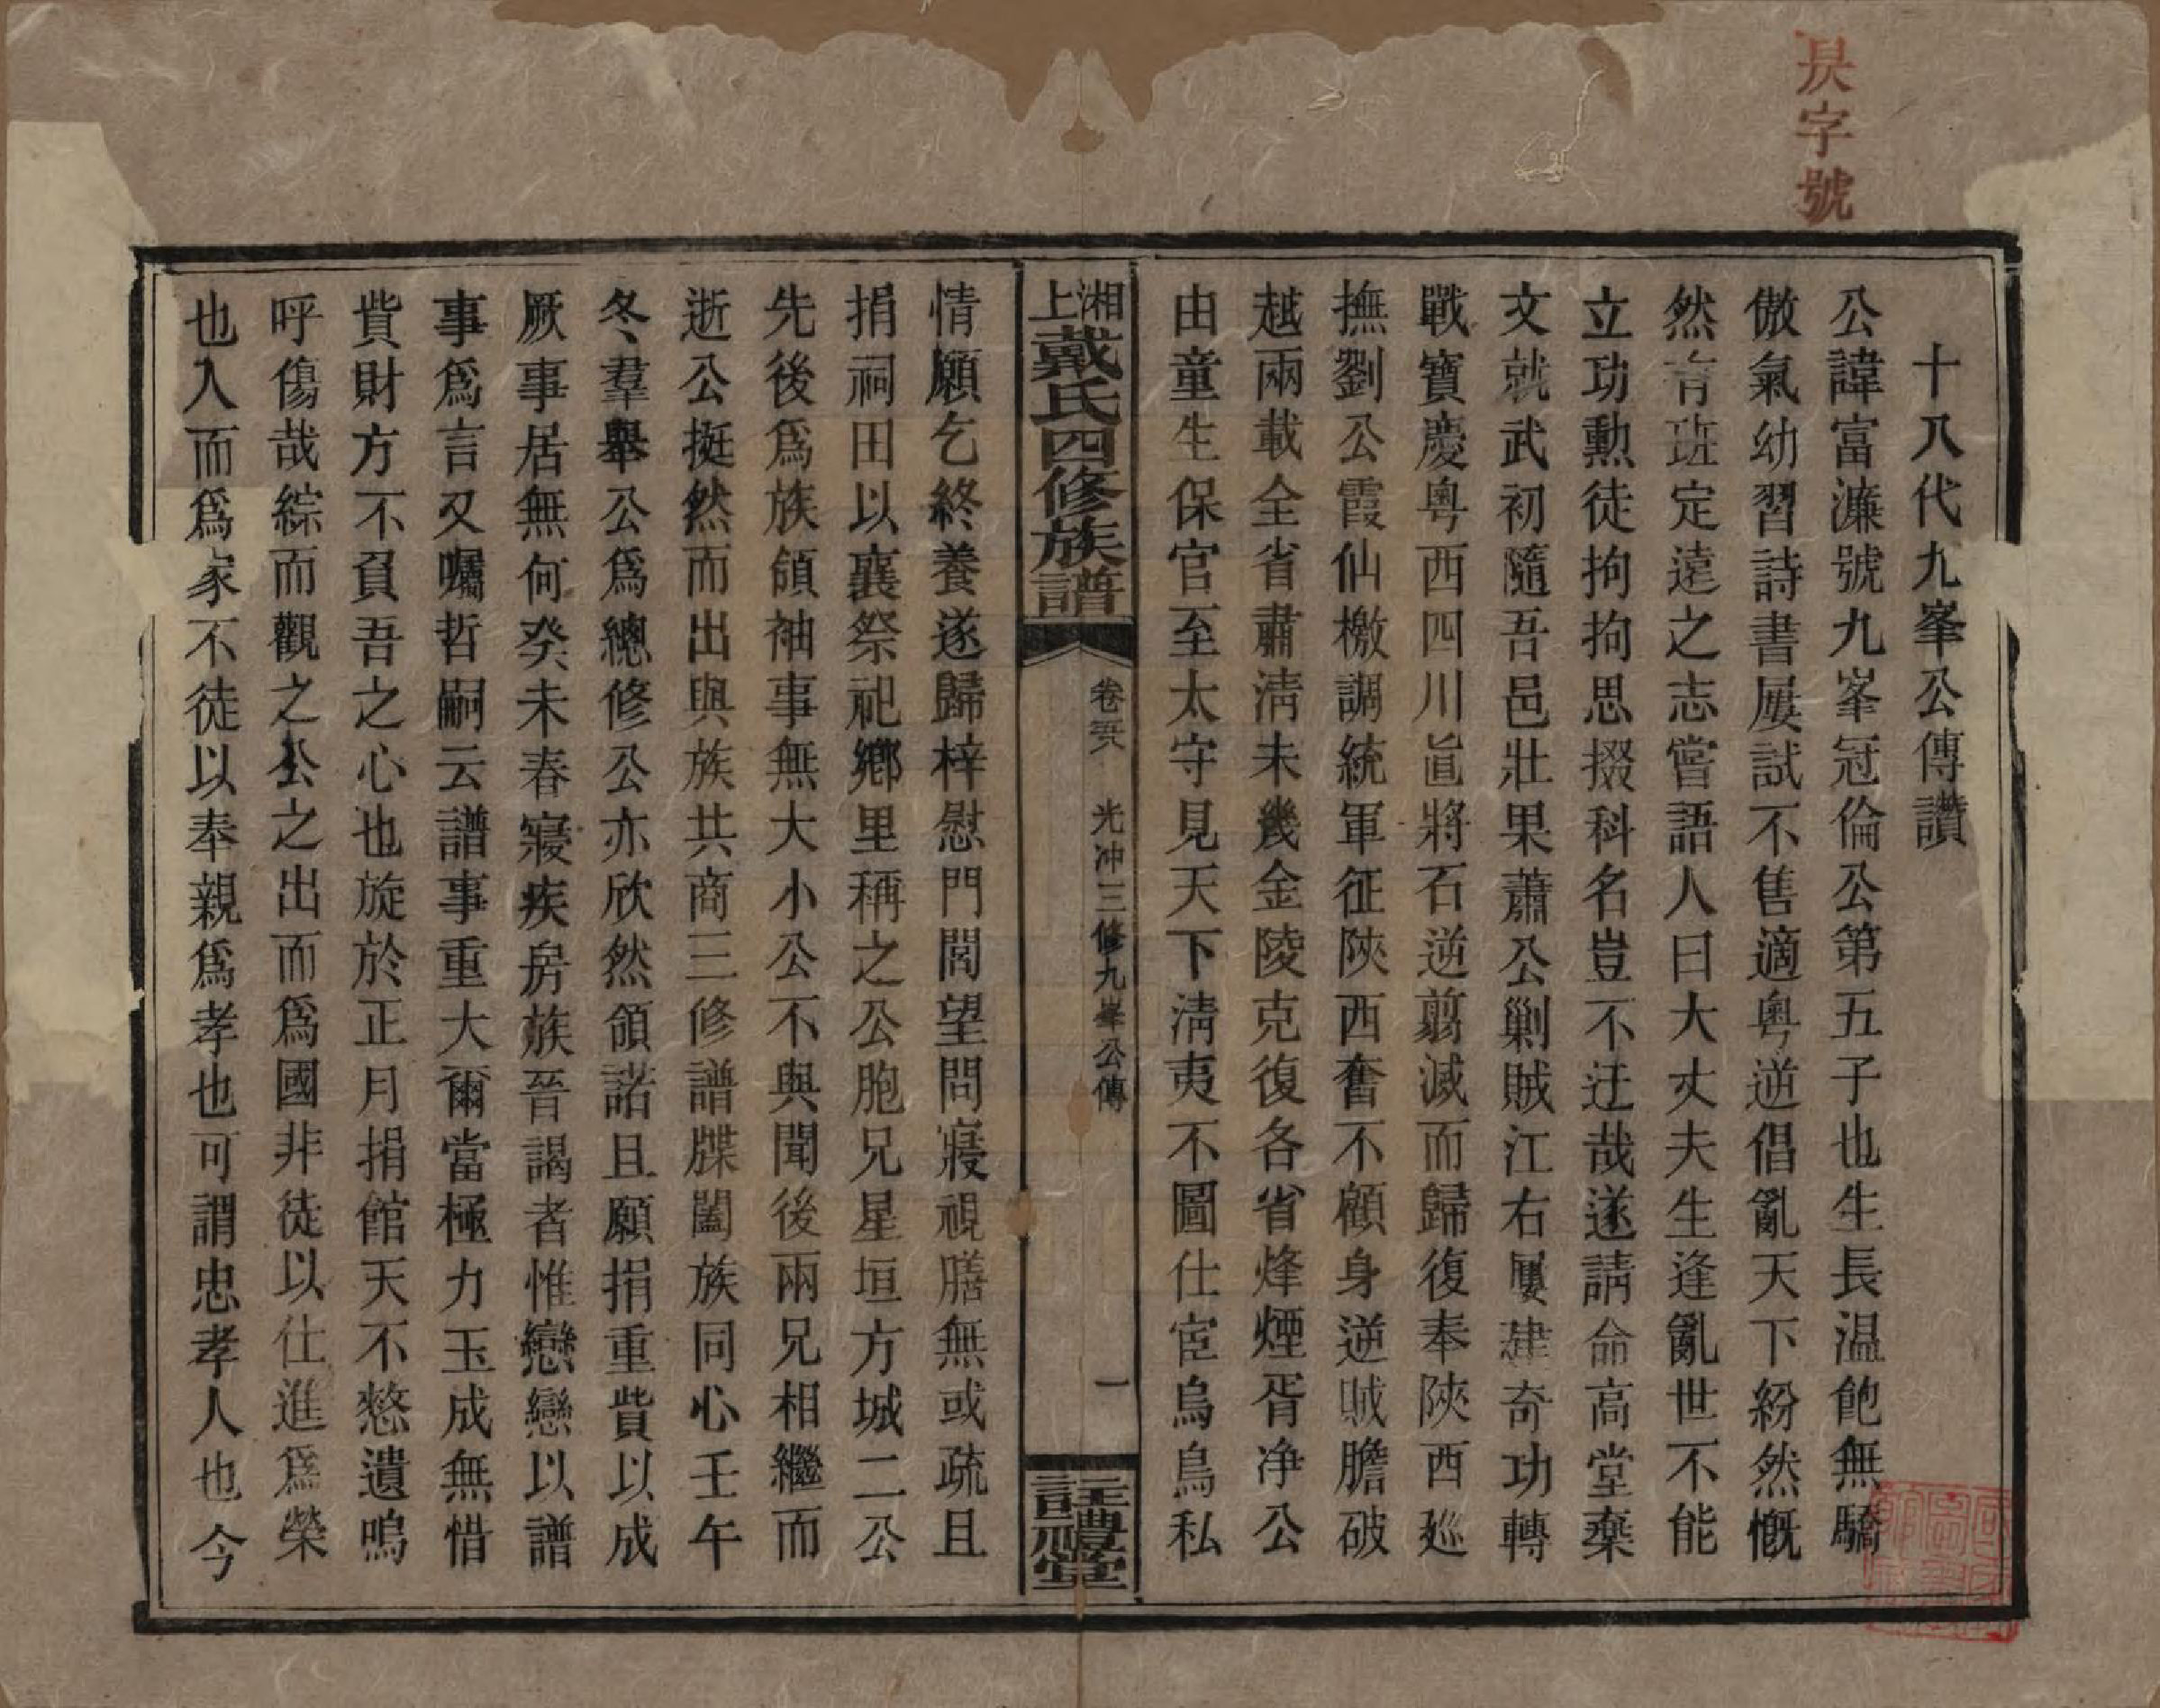 十八代九峯公傳讚
公諱富濂號九峯冠倫公第五子也生長温飽無驕
傲氣幼習詩書屢試不售適粵逆倡亂天下紛然慨
然有班定遠之志嘗語人曰大丈夫生逢亂世不能
立功勲徒拘拘思掇科名豈不迂哉遂請命高堂棄
文就武初隨吾邑壯果蕭公剿賊江右屢建奇功轉
戰寶慶粵西四川眞將石逆翦滅而歸復奉陝西廵
撫劉公霞仙檄調統軍征陝西奮不顧身逆賊膽破
越兩載全省肅淸未幾金陵克復各省烽煙胥净公
由童生保官至太守見天下淸夷不圖仕宦烏鳥私
湘上戴氏四修族譜
卷 光冲三修九峯公傳
一
註禮堂
情願乞終養遂歸梓慰門閭望問寢視膳無或疏且
捐祠田以襄祭祀鄉里稱之公胞兄星垣方城二公
先後爲族領袖事無大小公不與聞後兩兄相繼而
逝公挺然而出與族共商三修譜牒闔族同心壬午
冬羣舉公爲總修公亦欣然領諾且願捐重貲以成
厥事居無何癸未春寢疾房族晉謁者惟戀戀以譜
事爲言又囑哲嗣云譜事重大爾當極力玉成無惜
貲財方不負吾之心也旋於正月捐館天不憖遺嗚
呼傷哉綜而觀之公之出而爲國非徒以仕進爲榮
也入而爲家不徒以奉親爲孝也可謂忠孝人也今
字號